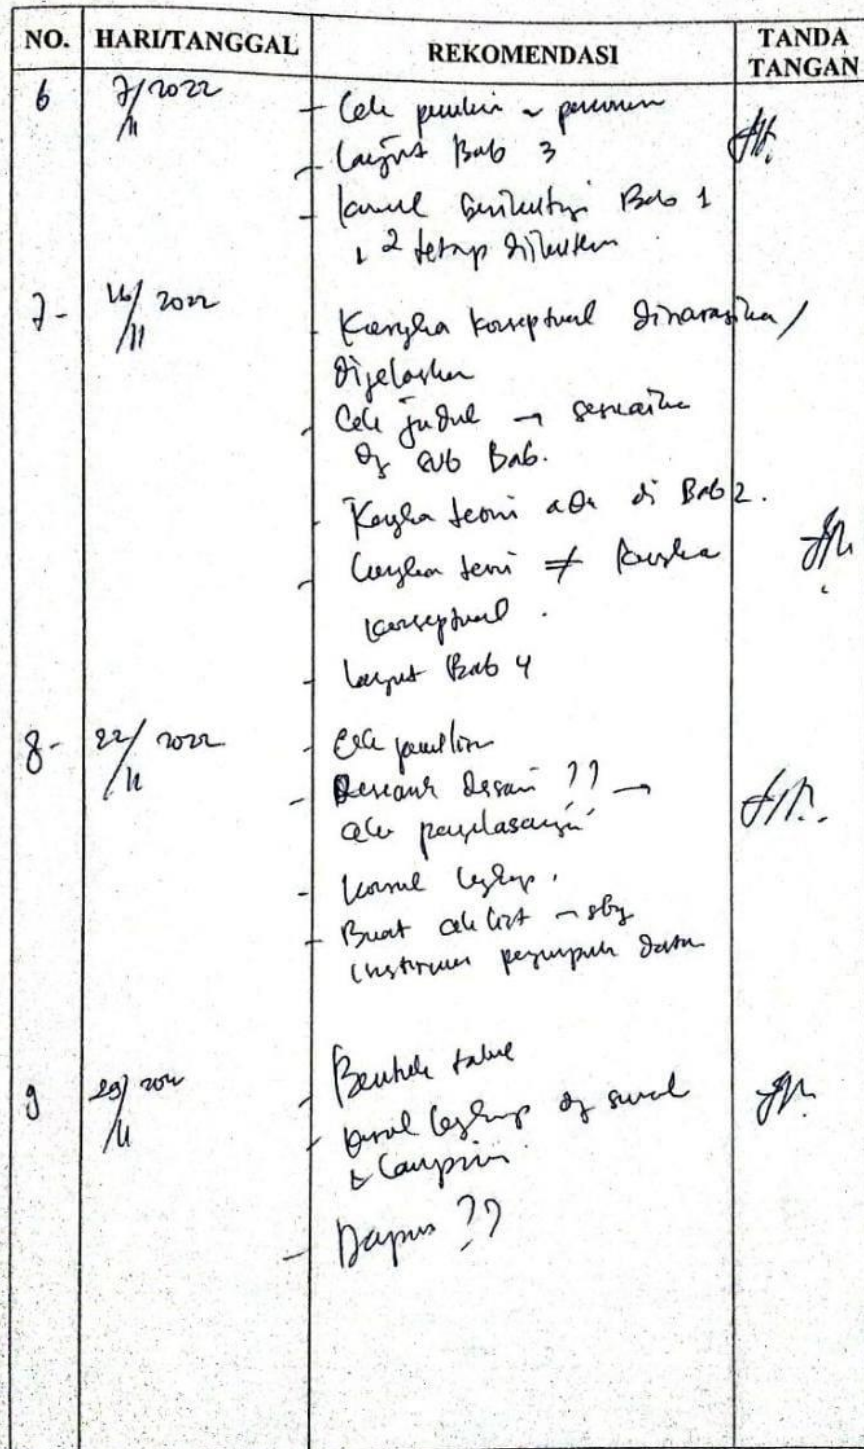 NO. HARI/TANGGAL REKOMENDASI TANDA TANGAN
6 7/11 2022
- Cek
- Lanjut Bab 3
- Konsul berikutnya Bab 1
& 2 tetap
7- 16/11 2022
- Kerangka konseptual dinarasikan/
dijelaskan
- Cek judul → sesuaikan
dg sub Bab.
- Kerangka teori ada di Bab 2.
- Kerangka teori ≠ kerangka
konseptual.
- Lanjut Bab 4
8- 22/11 2022
Cek penulisan
- desain ?? →
cek penjelasannya
- Konsul lengkap.
- Buat cek list → sbg
instrumen data
9 29/11
- tabel
- Konsul lengkap dg
& lampiran
- Dapus ??